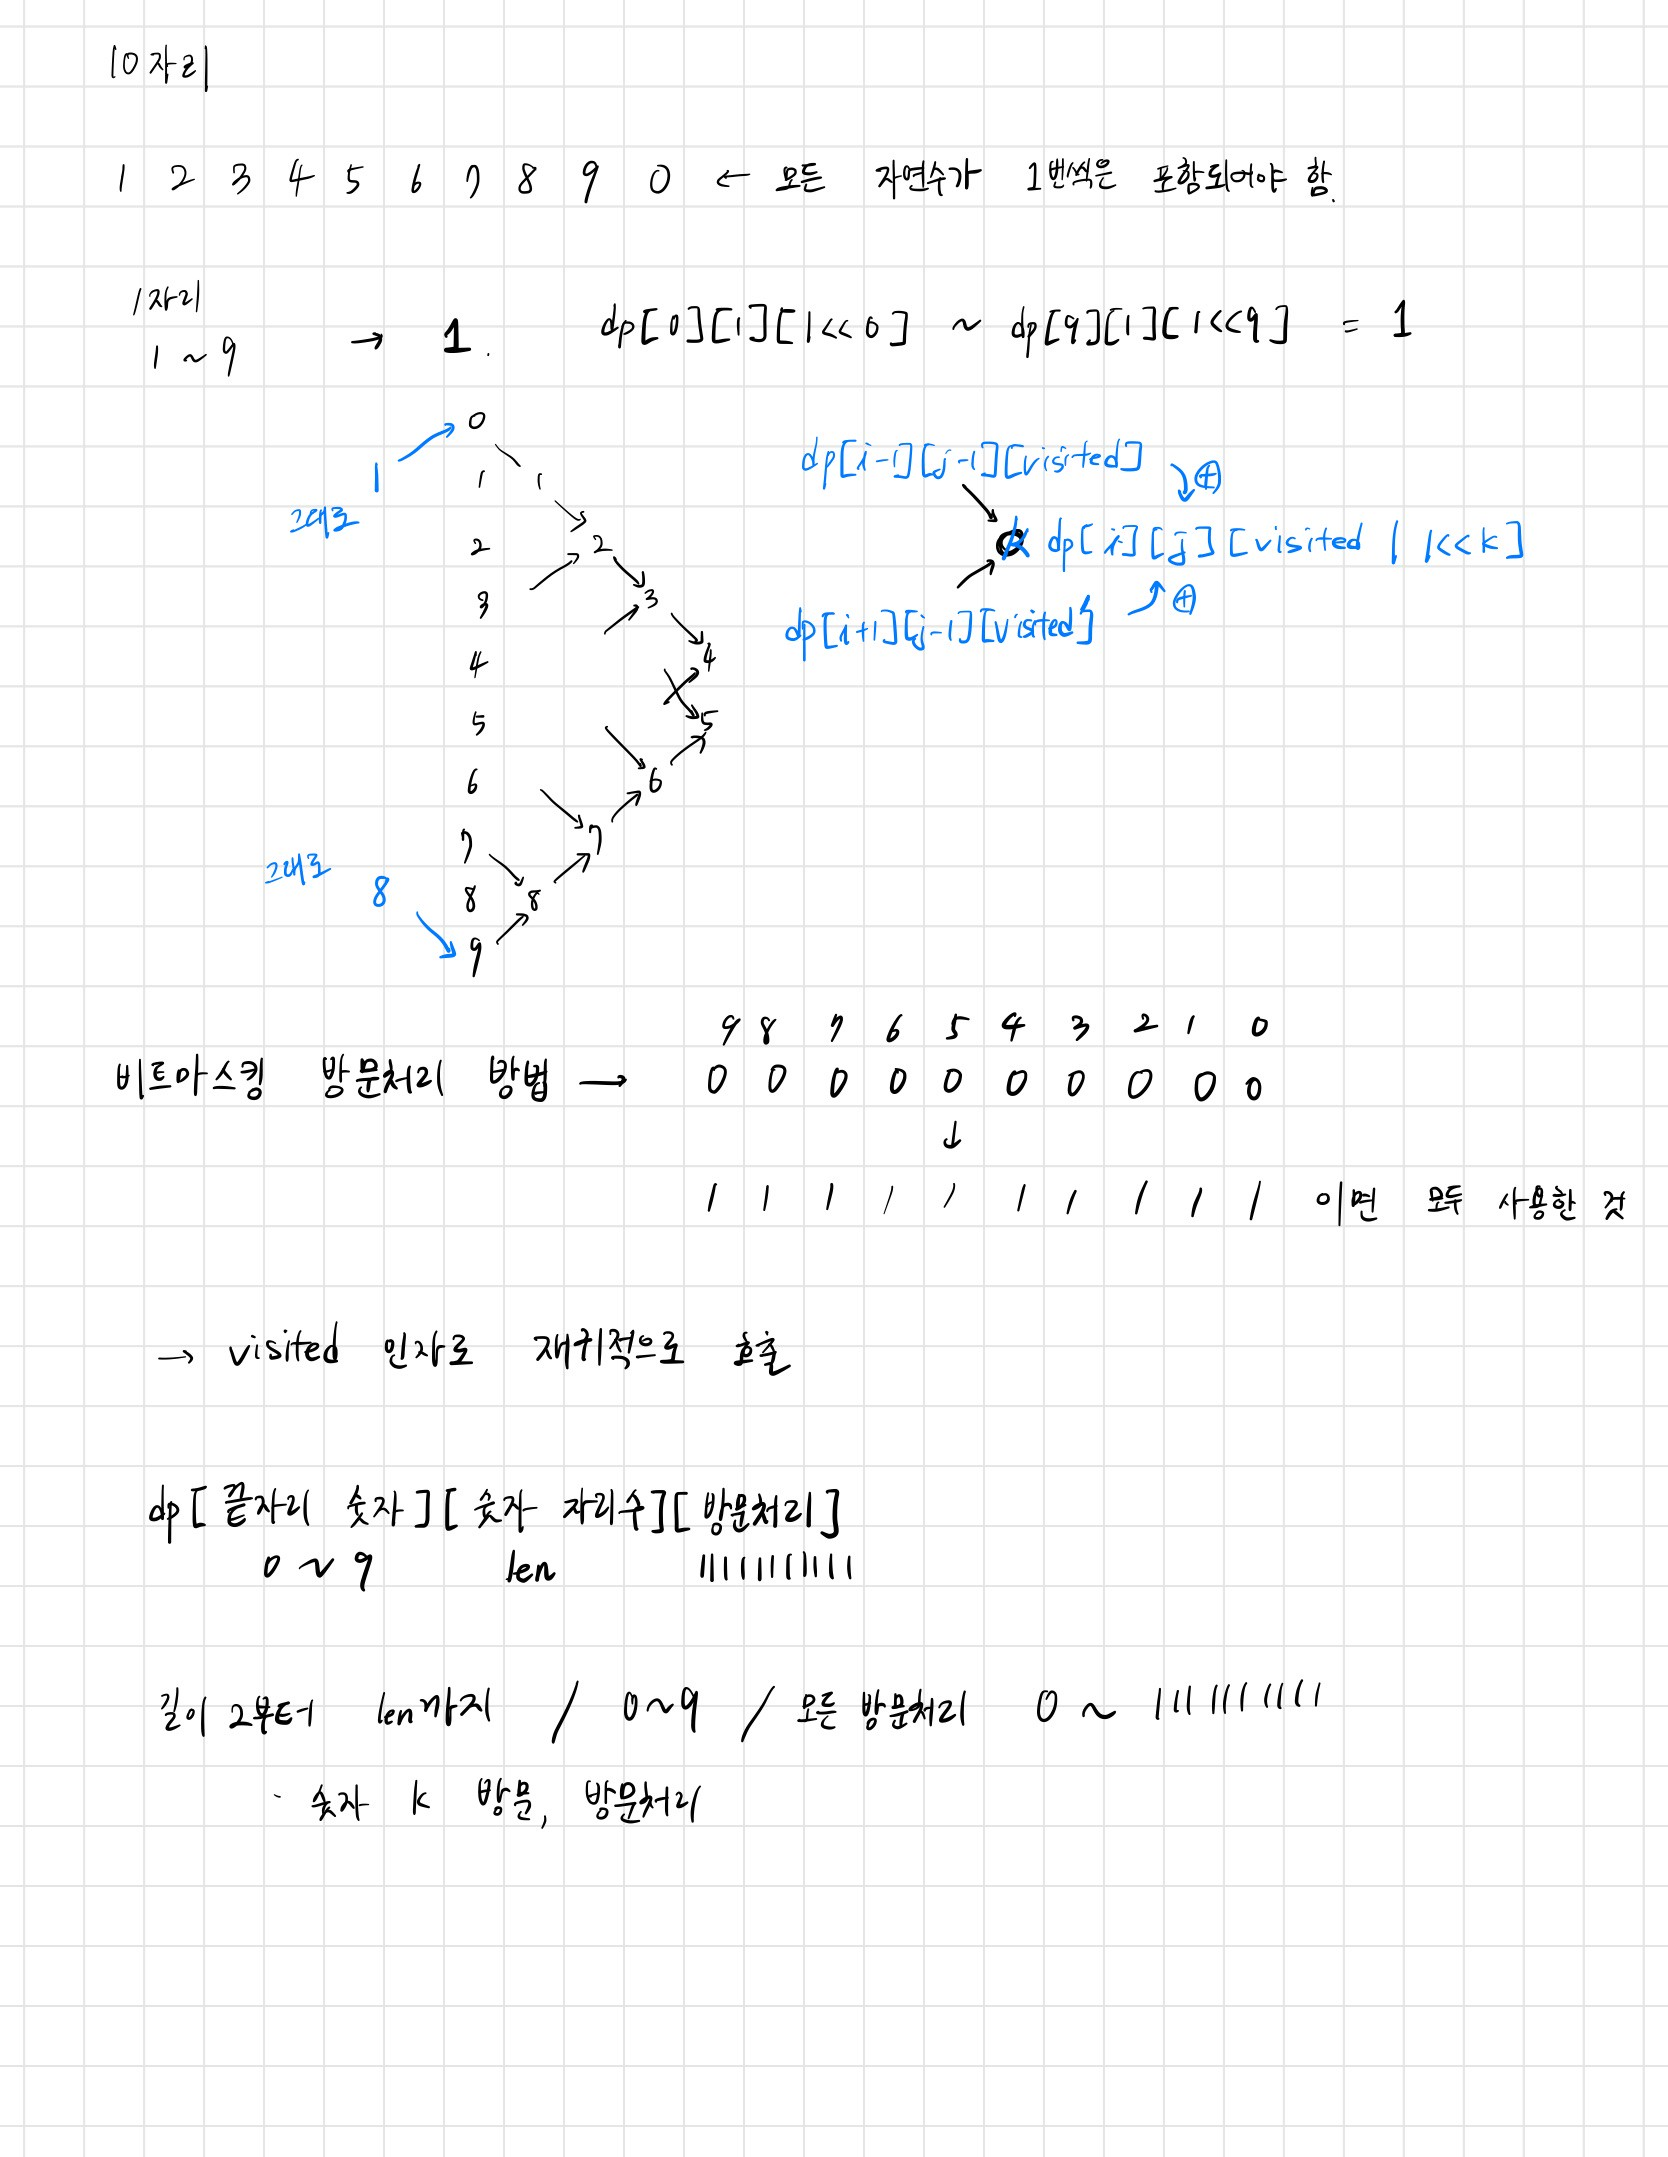 10자리
1 2 3 4 5 6 7 8 9 0 ← 모든 자연수가 1번씩은 포함되어야 함.
1자리
1 ~ 9 → 1. dp[0][1][1<<0] ~ dp[9][1][1<<9] = 1
0
1
그대로
1 1
2 2
3 3
4 4
5 5
6 6
7 7
그대로
8
8 8
9
dp[i-1][j-1][visited] ⊕
k dp[i][j][visited | 1<<k]
dp[i+1][j-1][visited] ⊕
9 8 7 6 5 4 3 2 1 0
비트마스킹 방문처리 방법 → 0 0 0 0 0 0 0 0 0 0
↓
1 1 1 1 1 1 1 1 1 1 이면 모두 사용한 것
→ visited 인자로 재귀적으로 호출
dp[끝자리 숫자][숫자 자리수][방문처리]
0 ~ 9 len 1111111111
길이 2부터 len까지 / 0~9 / 모든 방문처리 0 ~ 1111111111
· 숫자 k 방문, 방문처리